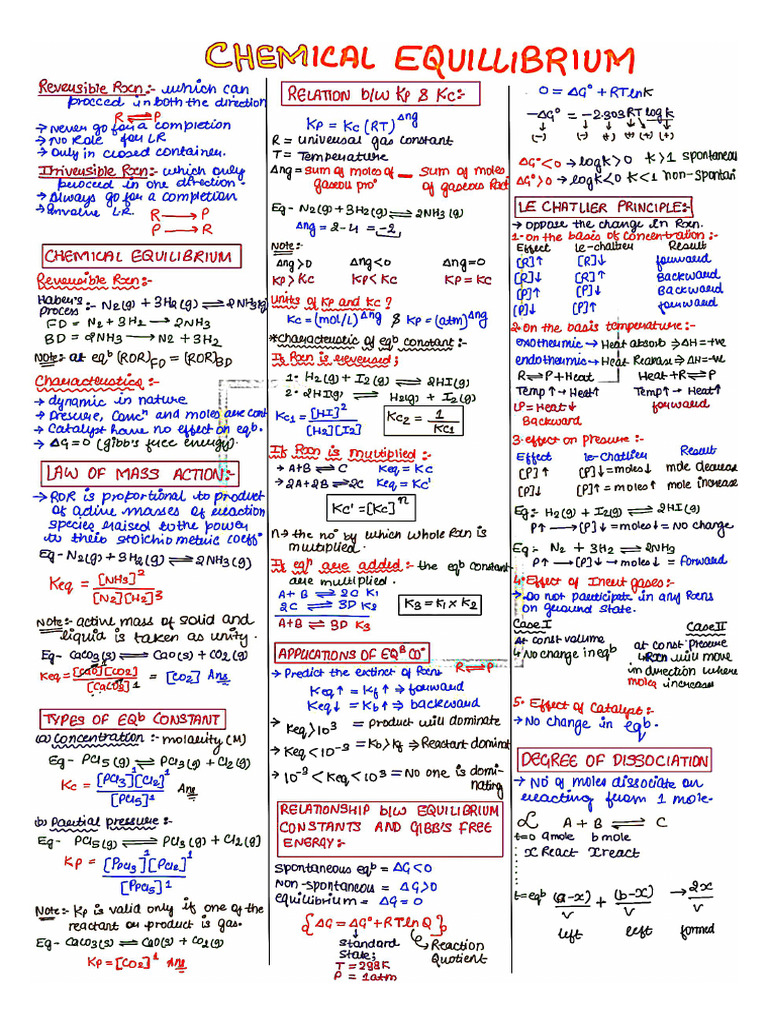 CHEMICAL EQUILLIBRIUM
Reversible Rxn:- which can
proceed in both the direction
R ⇌ P
→ Never go for a completion
→ No Role for LR
→ Only in closed container.
Irriversible Rxn:- which only
proceed in one direction.
→ Always go for a completion
→ Involve L.R.
R → P
P → R
CHEMICAL EQUILIBRIUM
Reversible Rxn:-
Haber's
Process:- N2(g) + 3H2(g) ⇌ 2NH3(g)
FD = N2 + 3H2 → 2NH3
BD = 2NH3 → N2 + 3H2
Note:- at eqb (ROR)FD = (ROR)BD
Characteristics:-
→ dynamic in nature
→ Pressure, Concn and moles are cont
→ Catalyst have no effect on eqb.
→ ΔG=0 (gibb's free energy).
LAW OF MASS ACTION:-
→ ROR is proportional to product
of active masses of reaction
species raised to the power
to their stoichio metric coeff
Eg-N2(g)+3H2(g) ⇌ 2NH3(g)
Keq = [NH3]2 / [N2][H2]3
Note:- active mass of solid and
liquid is taken as unity.
Eg- CaCO3(s) ⇌ CaO(s) + CO2(g)
Keq = [CaO][CO2] / [CaCO3] 1 = [CO2] Ans
TYPES OF EQb CONSTANT
(a) Concentration:- molarity (M)
Eg- PCl5(g) ⇌ PCl3(g) + Cl2(g)
Kc = [PCl3]1[Cl2]1 / [PCl5]1 Ans
(b) Partial pressure:-
Eg- PCl5(g) ⇌ PCl3(g) + Cl2(g)
Kp = [PPCl3]1[PCl2]1 / [PPCl5]1
Note:- Kp is valid only if one of the
reactant or product is gas.
Eg- CaCO3(s) ⇌ CaO(s) + CO2(g)
Kp = [CO2]1 Ans
RELATION b/w Kp & Kc:-
Kp = Kc (RT)Δng
R = universal gas constant
T = Temperature
Δng = sum of moles of gaseous pro – sum of moles of gaseous Ract
Eg- N2(g)+3H2(g) ⇌ 2NH3(g)
Δng = 2-4 = -2
Note:-
Δng>0 Δng<0 Δng=0
Kp>Kc Kp<Kc Kp=Kc
Units of Kp and Kc?
Kc = (mol/L)Δng & Kp = (atm)Δng
*Characteristic of eqb constant:-
If Rxn is reversed;
1· H2(g) + I2(g) ⇌ 2HI(g)
2· 2HI(g) ⇌ H2(g) + I2(g)
Kc1 = [HI]2 / [H2][I2] Kc2 = 1 / Kc1
If Rxn is multiplied:-
→ A+B ⇌ C Keq = Kc
→ 2A+2B ⇌ 2C Keq = Kc'
Kc' = [Kc]n
n → the no by which whole Rxn is
multiplied.
If eqn are added:- the eqb constant
are multiplied.
A + B ⇌ 2C K1
2C ⇌ 3D K2
A+B ⇌ 3D K3
K3 = K1 x K2
APPLICATIONS OF EQB CO
R ⇌ P
→ Predict the extinct of Rxn
Keq↑ = Kf↑ → forward
Keq↓ = Kb↑ → backward
→ Keq >10^3 = Product will dominate
→ Keq <10^-3 = Kb>Kf → Reactant dominat
→ 10^-3 < Keq <10^3 = No one is domi-
nating
RELATIONSHIP b/w EQUILIBRIUM
CONSTANTS AND GIBB'S FREE
ENERGY:-
spontaneous eqb = ΔG<0
Non-spontaneous = ΔG>0
equilibrium = ΔG = 0
{ΔG = ΔG° + RT ln Q}
standard
State;
T = 298K
P = 1atm
Reaction
Quotient
0 = ΔG° + RT lnK
-ΔG° = -2·303 RT log K
(-) (-) (+) (+) (+)
ΔG°<0 → logK>0 K>1 spontaneous
ΔG°>0 → logK<0 K<1 non-spontan
LE CHATLIER PRINCIPLE:-
→ oppose the change in Rxn.
1- On the basis of Concentration:-
Effect le-chatlier Result
[R]↑ [R]↓ forward
[R]↓ [R]↑ Backward
[P]↑ [P]↓ Backward
[P]↓ [P]↑ forward
2- On the basis temperature:-
exothermic → Heat absorb → ΔH=+ve
endothermic → Heat Realease → ΔH=-ve
R ⇌ P+Heat Heat+R ⇌ P
Temp↑ → Heat↑ Temp↑ → Heat↑
LP = Heat↓ forward
Backward
3· effect on Pressure:-
Effect le-chatlier Result
[P]↑ [P]↓=moles↓ mole decrease
[P]↓ [P]↑=moles↑ mole increase
Eg:- H2(g) + I2(g) ⇌ 2HI(g)
P↑ → [P]↓ = moles↓ = No change
Eg:- N2 + 3H2 ⇌ 2NH3
P↑ → [P]↓ → moles↓ = Forward
4· Effect of Inert gases:-
→ Do not participate in any Rxns
on ground state.
Case I
At const volume
↳ No change in eqb
Case II
at const pressure
↳ Rxn will move
in direction where
moles increase
5· Effect of Catalyst:-
→ No change in eqb.
DEGREE OF DISSOCIATION
→ No of moles dissociate on
reacting from 1 mole.
α A + B ⇌ C
t=0 a mole b mole
x React x react
t=eqb (a-x)/V + (b-x)/V → 2x/V
left left formed